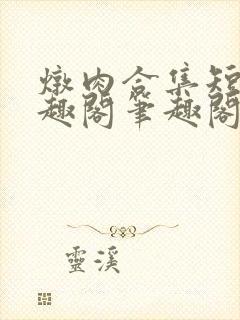 燉肉合集短
趣閣筆趣閣
靈溪